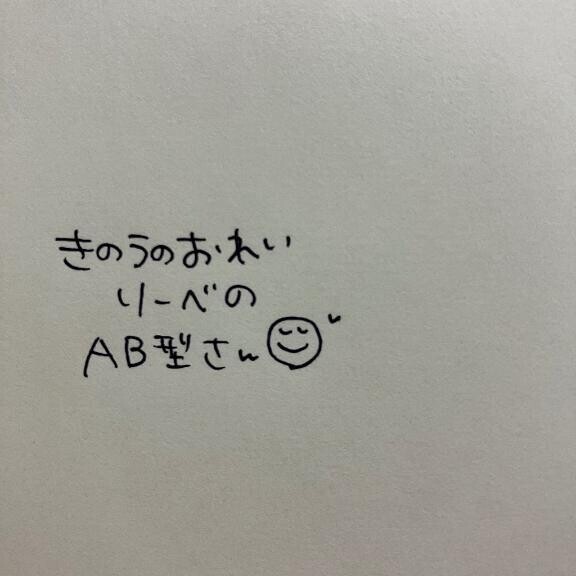 きのうのおれい
リーベの
AB型さん